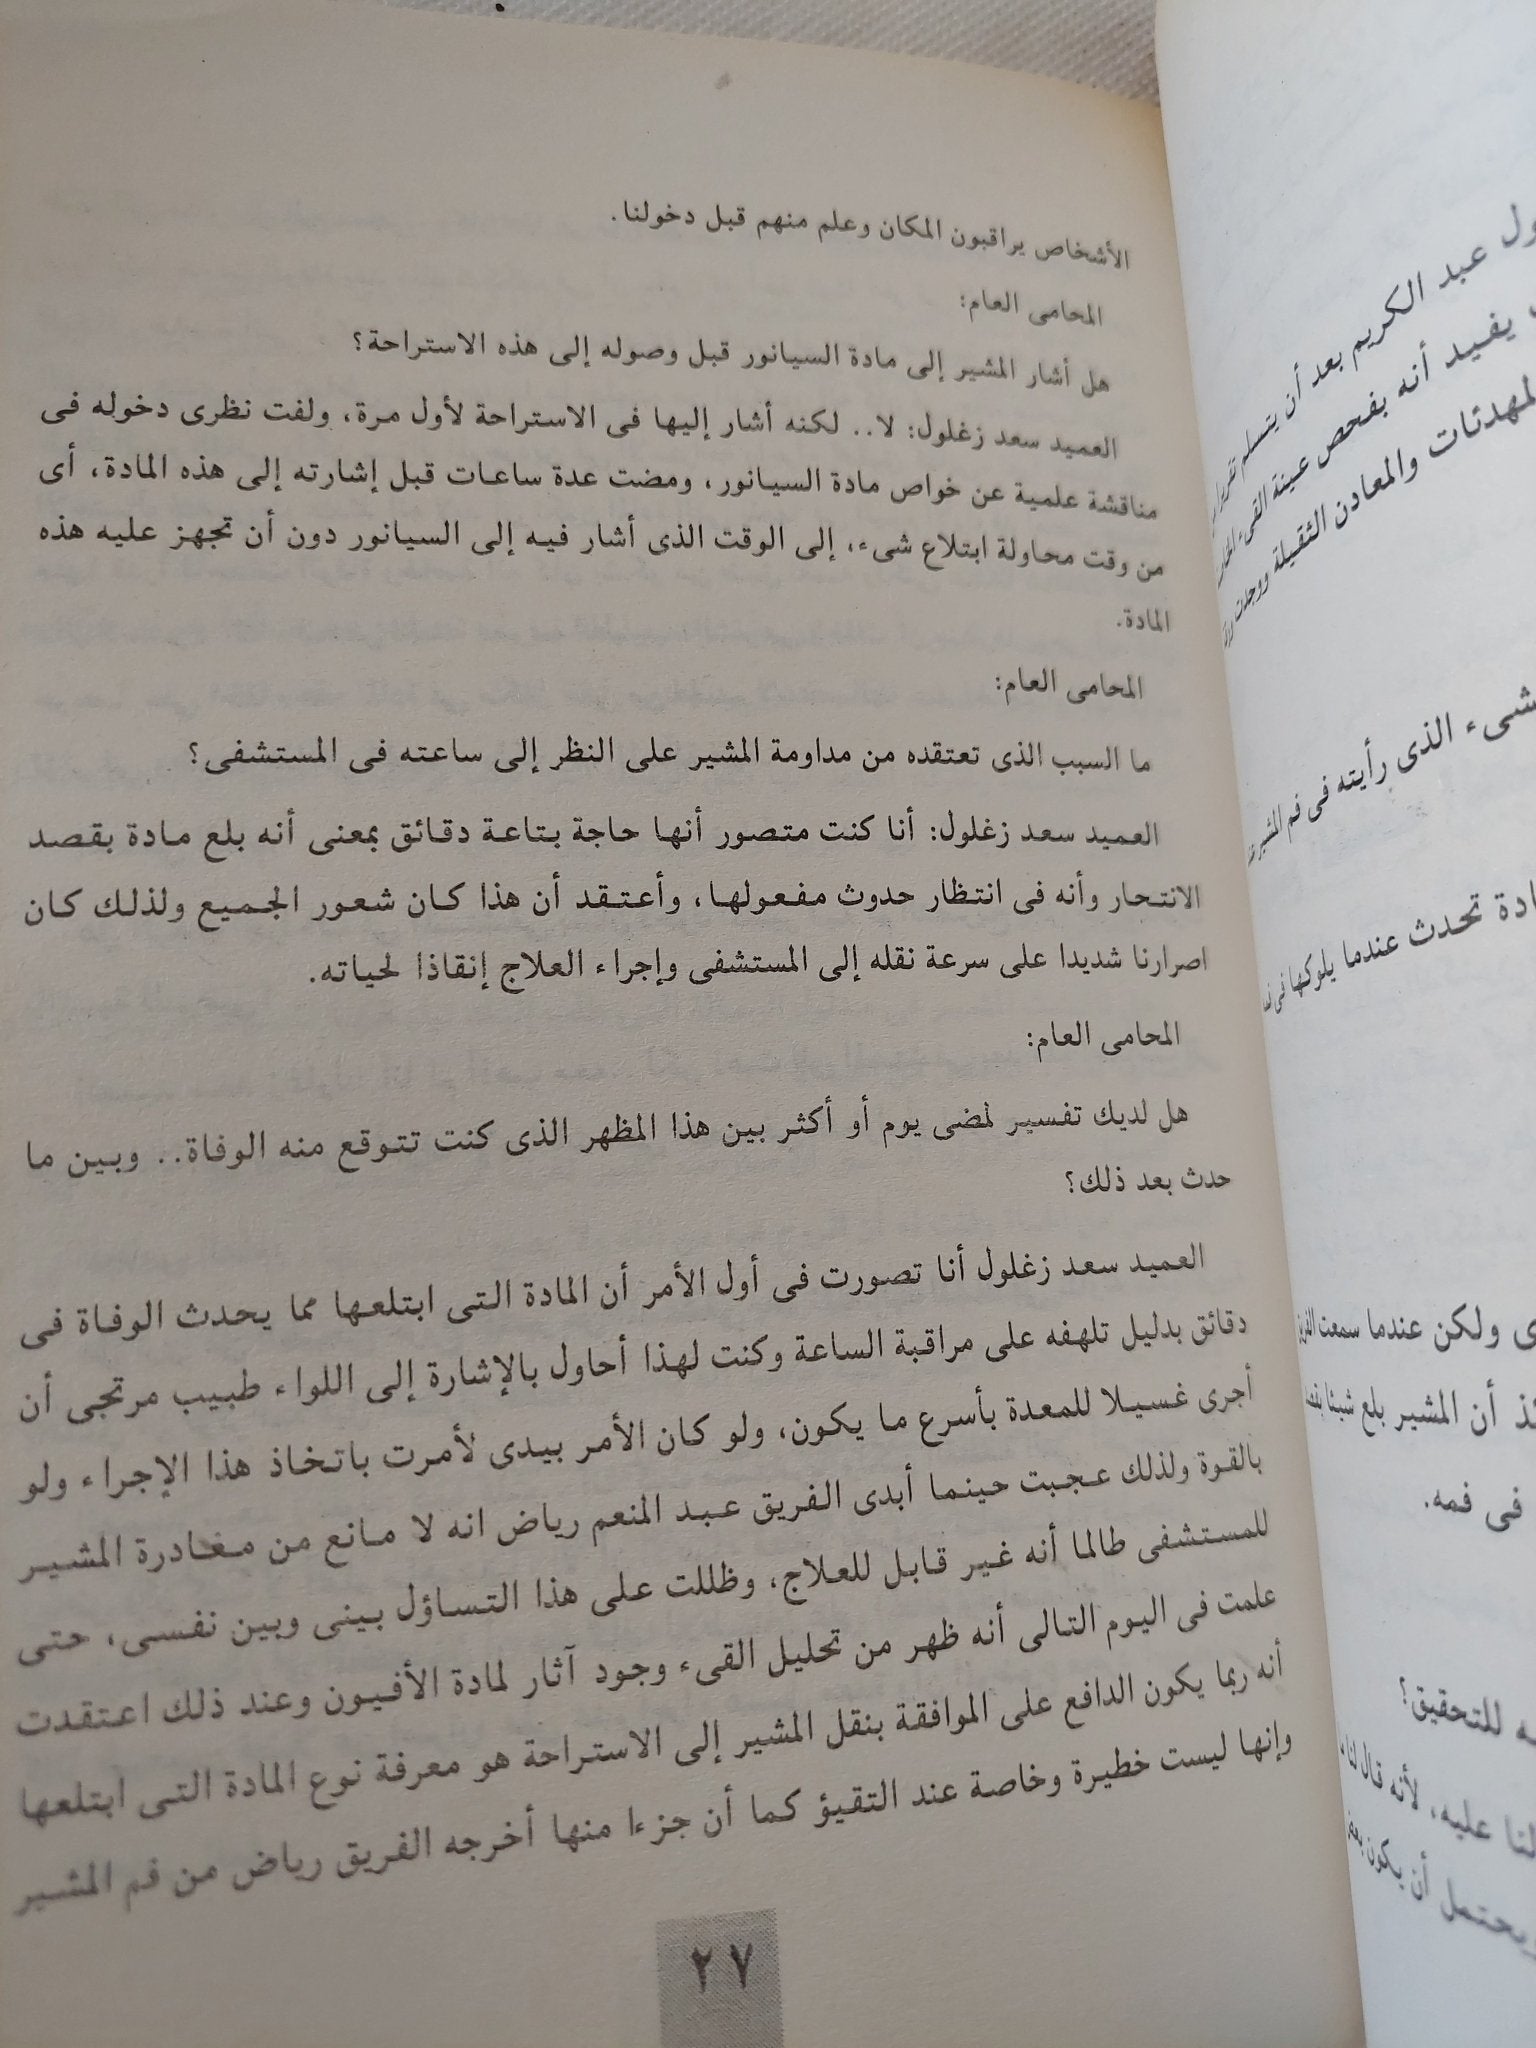 الأشخاص يراقبون المكان وعلم منهم قبل دخولنا.
المحامى العام:
هل أشار المشير إلى مادة السيانور قبل وصوله إلى هذه الاستراحة؟
العميد سعد زغلول: لا.. لكنه أشار إليها فى الاستراحة لأول مرة، ولفت نظرى دخوله فى
مناقشة علمية عن خواص مادة السيانور، ومضت عدة ساعات قبل إشارته إلى هذه المادة، أى
من وقت محاولة ابتلاع شىء، إلى الوقت الذى أشار فيه إلى السيانور دون أن تجهز عليه هذه
المادة.
المحامى العام:
ما السبب الذى تعتقده من مداومة المشير على النظر إلى ساعته فى المستشفى؟
العميد سعد زغلول: أنا كنت متصور أنها حاجة بتاعة دقائق بمعنى أنه بلع مادة بقصد
الانتحار وأنه فى انتظار حدوث مفعولها، وأعتقد أن هذا كان شعور الجميع ولذلك كان
اصرارنا شديدا على سرعة نقله إلى المستشفى وإجراء العلاج إنقاذا لحياته.
المحامى العام:
هل لديك تفسير لمضى يوم أو أكثر بين هذا المظهر الذى كنت تتوقع منه الوفاة.. وبين ما
حدث بعد ذلك؟
العميد سعد زغلول أنا تصورت فى أول الأمر أن المادة التى ابتلعها مما يحدث الوفاة فى
دقائق بدليل تلهفه على مراقبة الساعة وكنت لهذا أحاول بالإشارة إلى اللواء طبيب مرتجى أن
أجرى غسيلا للمعدة بأسرع ما يكون، ولو كان الأمر بيدى لأمرت باتخاذ هذا الإجراء ولو
بالقوة ولذلك عجبت حينما أبدى الفريق عبد المنعم رياض انه لا مانع من مغادرة المشير
للمستشفى طالما أنه غير قابل للعلاج، وظللت على هذا التساؤل بينى وبين نفسى، حتى
علمت فى اليوم التالى أنه ظهر من تحليل القىء وجود آثار لمادة الأفيون وعند ذلك اعتقدت
أنه ربما يكون الدافع على الموافقة بنقل المشير إلى الاستراحة هو معرفة نوع المادة التى ابتلعها
وإنها ليست خطيرة وخاصة عند التقيؤ كما أن جزءا منها أخرجه الفريق رياض من فم المشير
٢٧
عبد الكريم بعد أن يتسلم
يفيد أنه بفحص عينة القىء
والمعادن الثقيلة ووجدت
الذى رأيته فى فم المشير
تحدث عندما يلوكها فى
ولكن عندما سمعت الفريق
أن المشير بلع شيئا بقصد
فى فمه.
للتحقيق؟
عليه، لأنه قال لنا
أن يكون